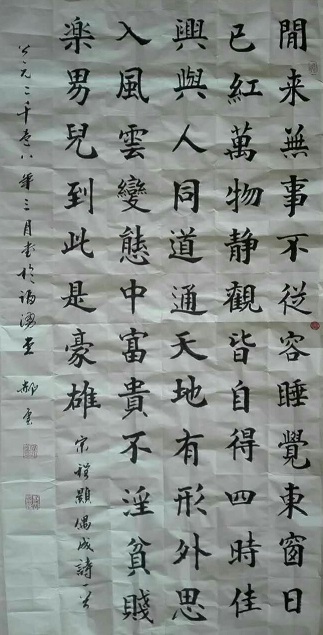 閒来無事不從容睡覺東窗日
已紅萬物静觀皆自得四時佳
興與人同道通天地有形外思
入風雲變態中富貴不淫貧賤
楽男兒到此是豪雄
宋程顥偶成詩
公元二千壹八年三月书於